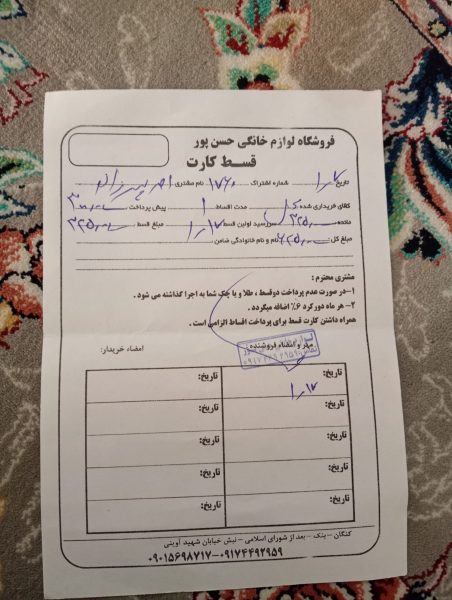 فروشگاه لوازم خانگی حسن پور
قسط کارت
تاریخ ۱۷ر۱ شماره اشتراک ۱۷۶۰ نام مشتری
کالای خریداری شده مدت اقساط ۱ پیش پرداخت
مانده ۳۲۵ سررسید اولین قسط ۱۷ر۱ مبلغ قسط ۳۲۵
مبلغ کل: ۶۲۵ نام و نام خانوادگی ضامن
مشتری محترم :
۱-در صورت عدم پرداخت دوقسط ، طلا و یا چک شما به اجرا گذاشته می شود .
۲- هر ماه دورکرد ۶% اضافه میگردد .
همراه داشتن کارت قسط برای پرداخت اقساط الزامی است .
مهر و امضاء فروشنده : امضاء خریدار:
تاریخ: تاریخ:
۱۷ر۱
تاریخ: تاریخ:
تاریخ: تاریخ:
تاریخ: تاریخ:
تاریخ: تاریخ:
کنگان - بنک - بعد از شورای اسلامی - نبش خیابان شهید آوینی
۰۹۰۱۵۶۹۸۷۱۷-۰۹۱۷۴۴۹۲۹۵۹